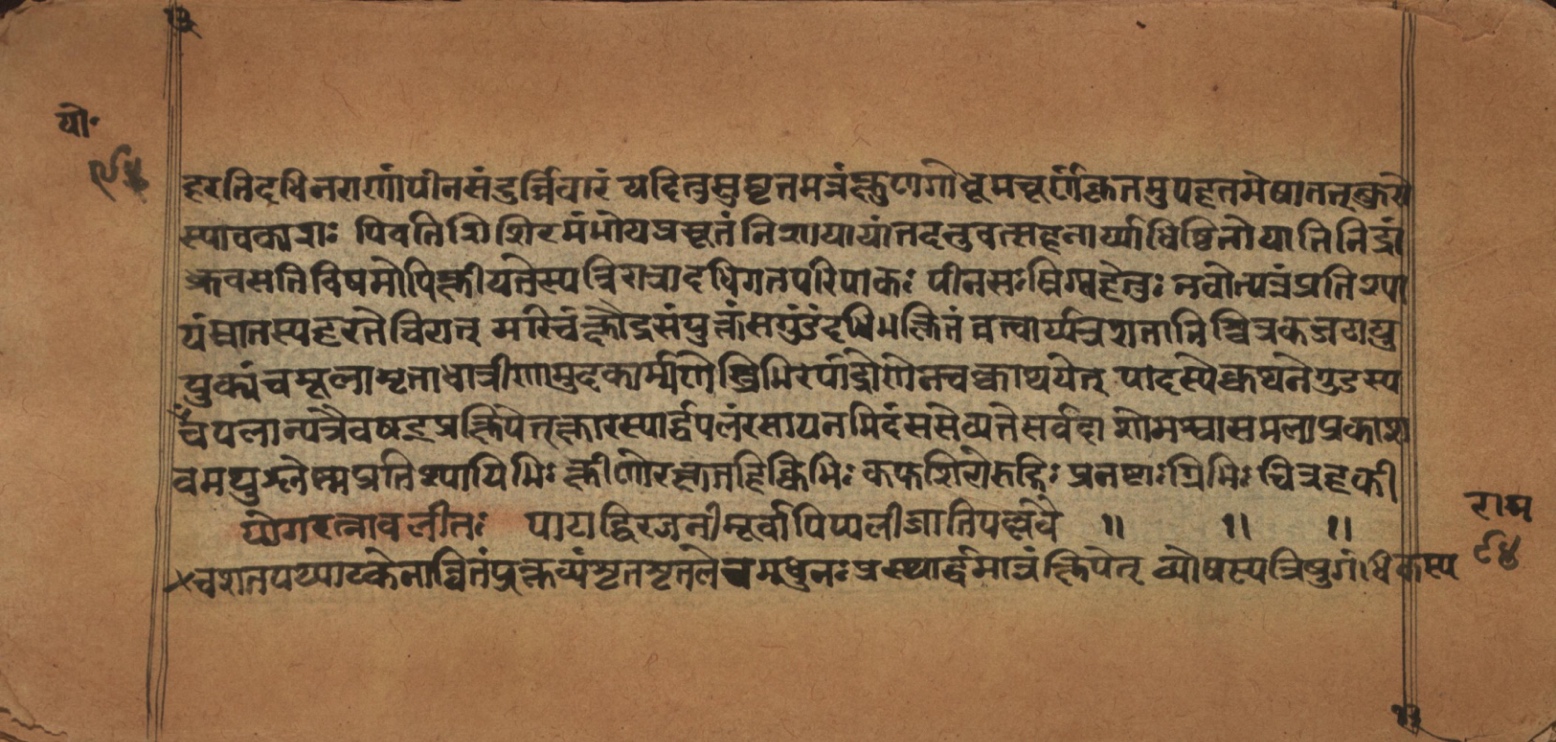 यो॰
९४
हरतिदधिनराणांपीनसंदुर्न्निवारं यदितुसुघृतमन्नंश्लक्ष्णगोधूमचूर्णैःकृतमुपहृतमेषातत्कुतो
स्यावकाशः पिवतिशिशिरमंभोयप्रसूतंनिशायायांतदनुवत्सहनार्य्याधिष्ठितोयातिनिद्रां
क्रवसतिविषमोपिक्षीयतेस्यत्रिरात्रादधिगतपरिपाकः पीनसःस्निग्धहेतुः नवोत्पन्नंप्रतिश्या
यंघ्रातस्यहरतेविशत् मरिचंक्षौद्रसंयुक्तंसगुंडंदधिभक्षितं तत्त्वार्य्यत्रशतानिचित्रकजटायु
युक्यंचमूलामृताधात्रीणामुदकार्म्मणे त्रिभिरपांद्रोणेनचक्वाथयेत् पादस्थेक्वथनेगुडस्य
चपलान्यत्रैवषड्प्रक्षिपेत्क्षारस्यार्द्धपलंरसायनमिदंससेव्यतेसर्वदा शोमश्वासमलाप्रकाश
वमथुश्लेष्मप्रतिश्यायिभिः क्षीणोरक्षतहिक्किभिः कफशिरोरुग्भिः प्रनष्टाग्निभिः चित्रहकी
योगरत्नावलीतः पाठाद्विरजनीमूर्वापिप्पलीजातिपल्लवैः ॥ ॥ ॥
चशतपथ्याढकेनान्वितंपुक्तव्यंमृतमृतलेचमधुनःप्रस्थार्द्धमात्रंक्षिपेत् व्योषस्यत्रिसुगंधिकस्य
राम
९४